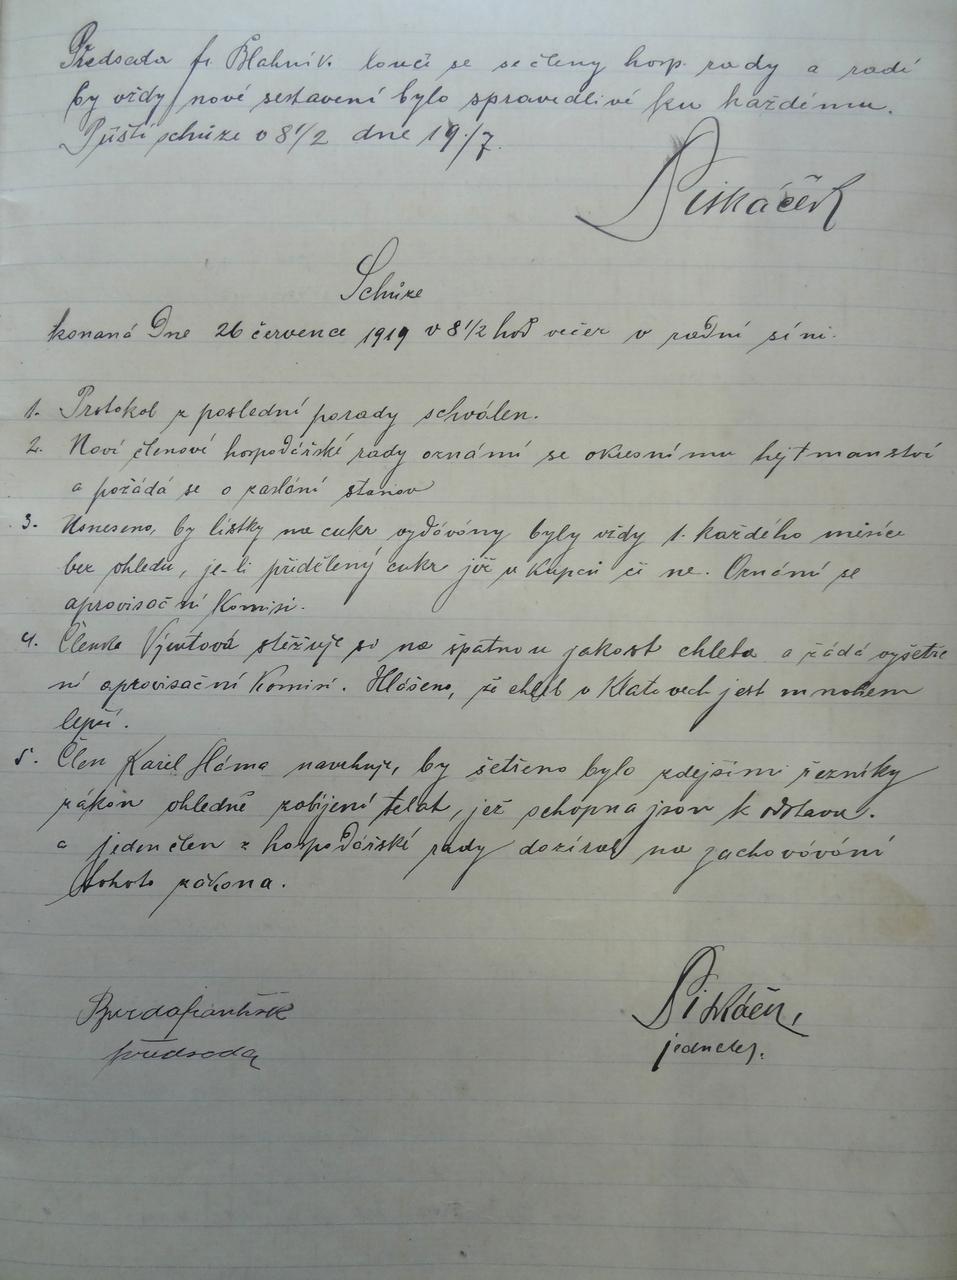 Předseda fr. Blahník. loučí se se členy hosp. rady a radí
by vždy nové sestavení bylo spravedlivé ku každému.
Příští schůze v 8 1/2 dne 19/7.
Piskáček
Schůze
konaná Dne 26 července 1919 v 8 1/2 hod večer v radní síni.
1. Protokol z poslední porady schválen.
2. Noví členové hospodářské rady oznámí se okresnímu hejtmanství
a požádá se o zaslání stanov
3. Usneseno, by lístky na cukr vydávány byly vždy 1. každého měsíce
bez ohledu, je-li přidělený cukr již u kupců či ne. Oznámí se
aprovisační Komisi.
4. Členka stěžuje si na špatnou jakost chleba a žádá vyšetře
ní aprovisační Komisí. Hlášeno, že chléb v Klatovech jest mnohem
lepší.
5. Člen Karel Háma navrhuje, by šetřeno bylo zdejšími řezníky
zákon ohledně zabíjení telat, jež schopna jsou k odstavu.
a jeden člen z hospodářské rady dozíral na zachovávání
tohoto zákona.
Burda František
předseda
Piskáček,
jednatel.